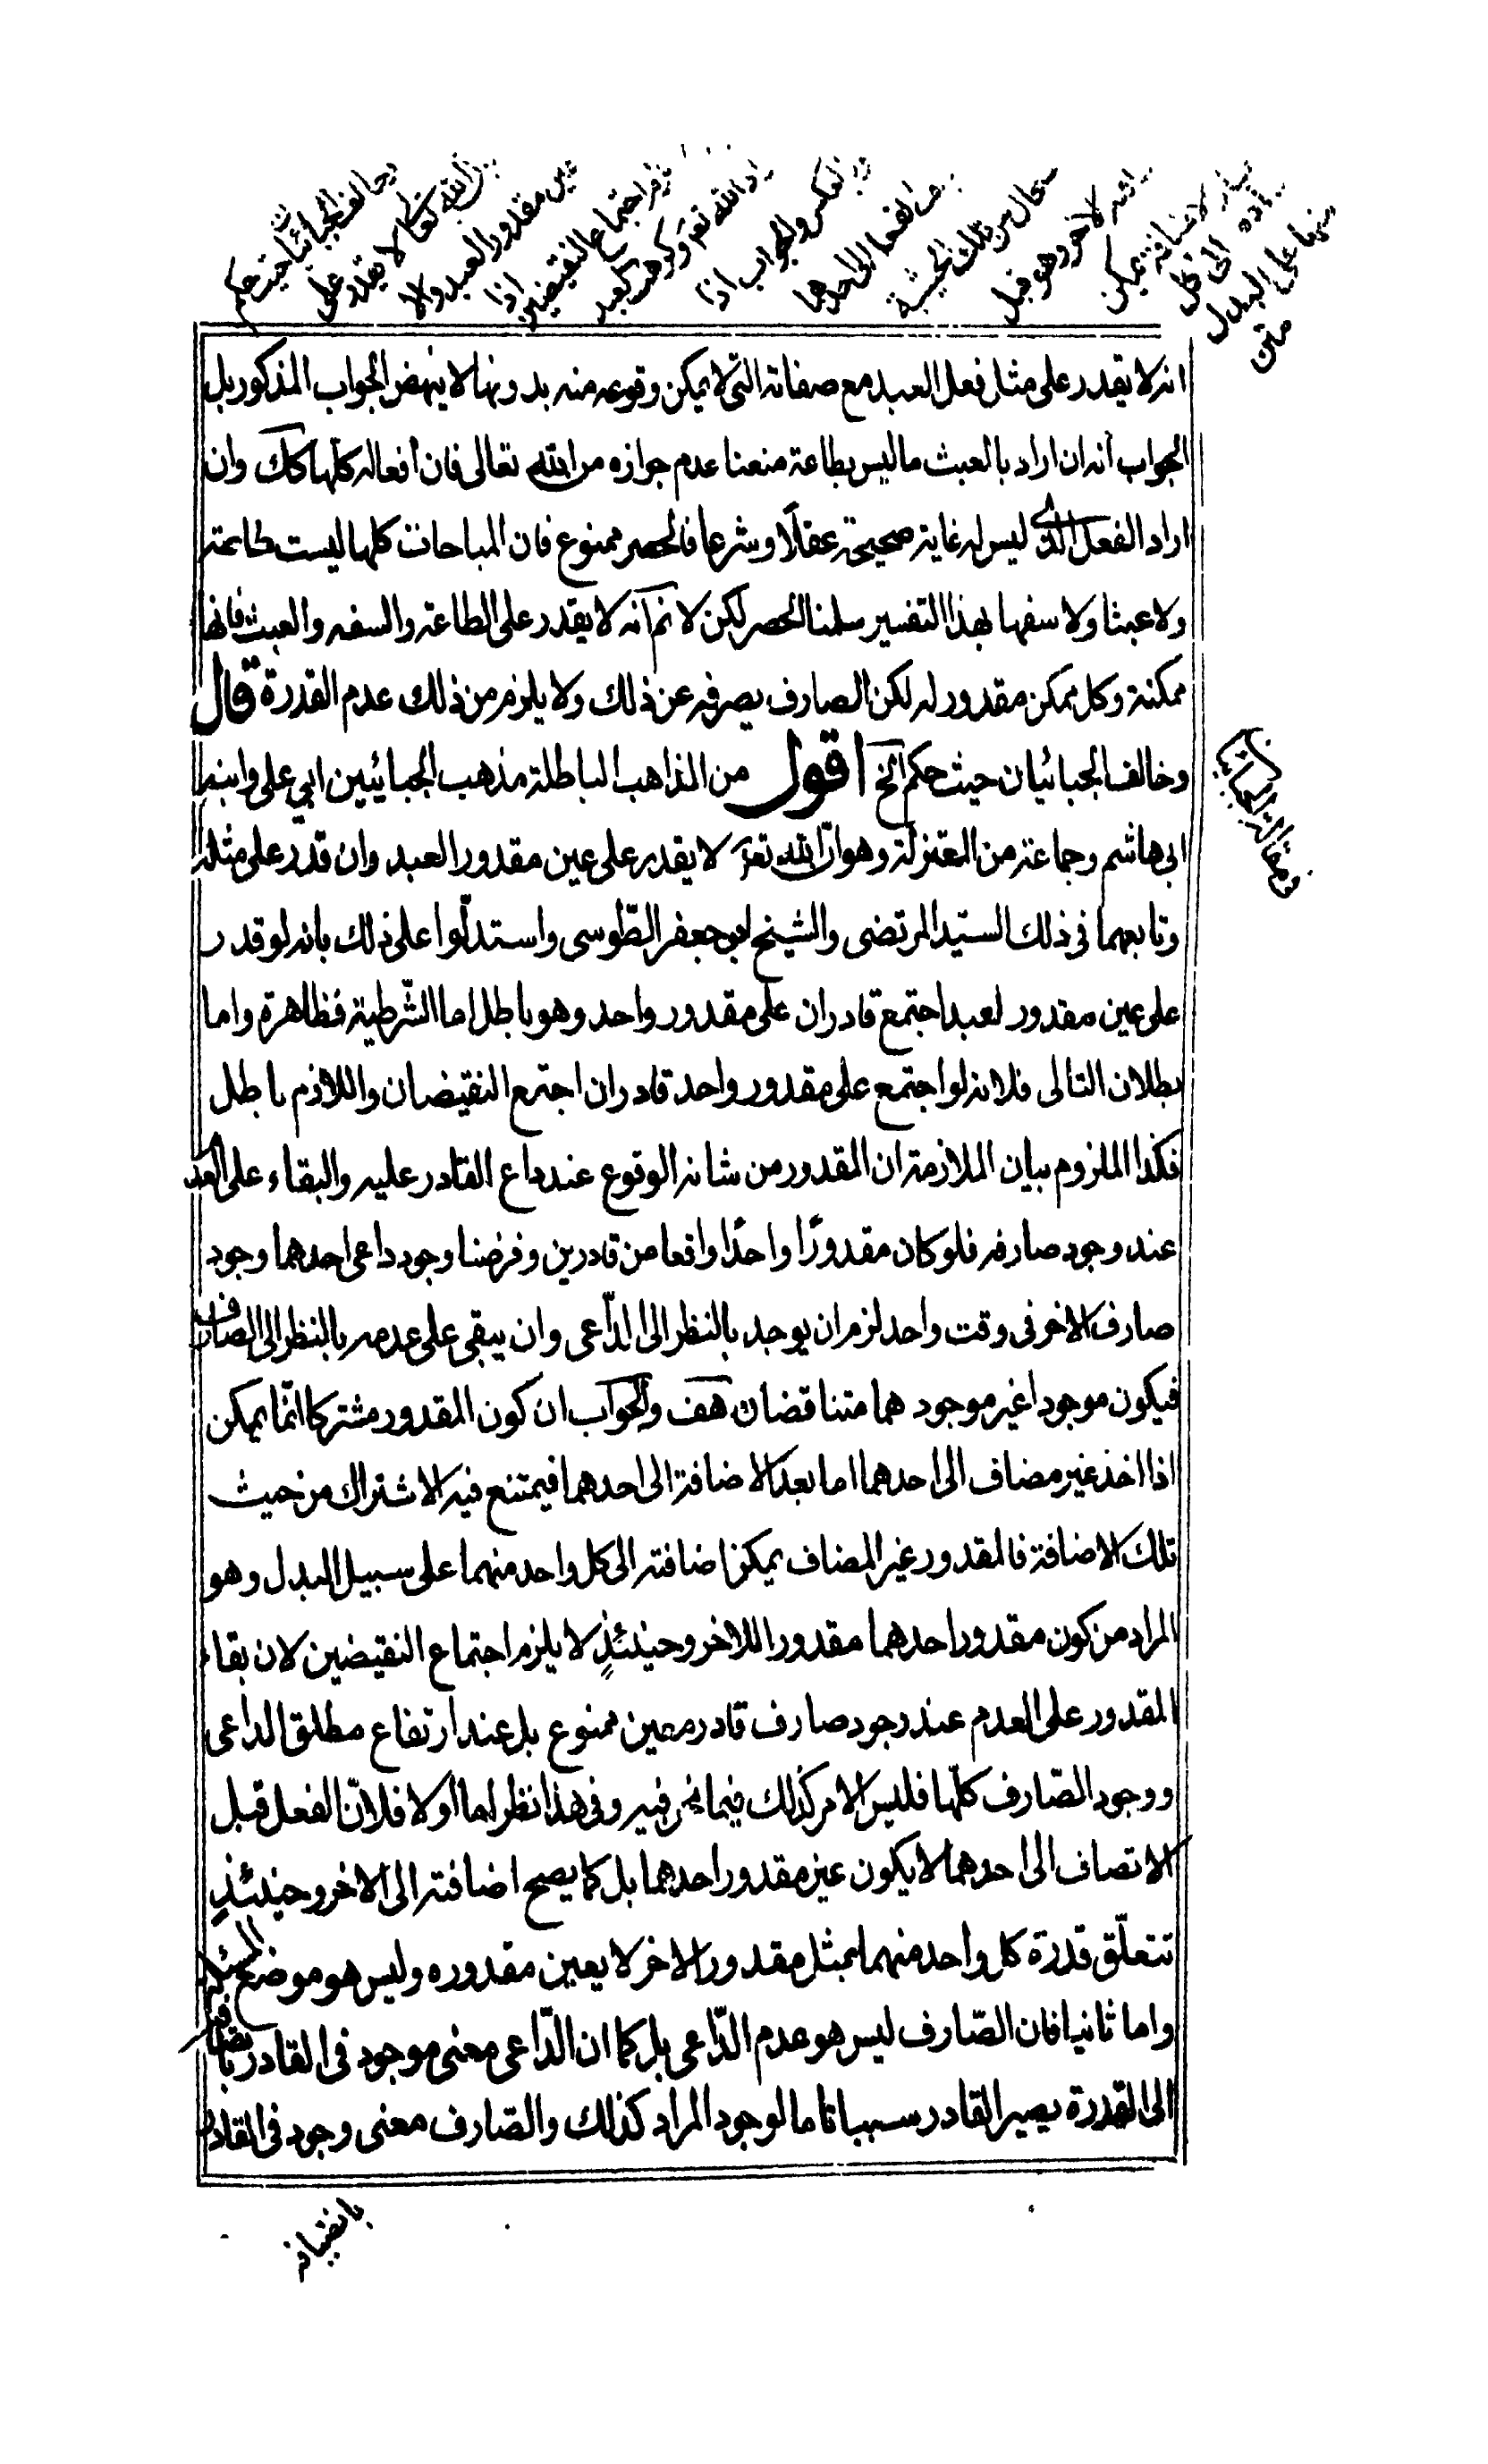 انه لا يقدر على مثل فعل العبد مع صفاته التى لا يمكن وقوعه منه بدونها لا ينهض الجواب المذكور بل
الجواب انه ان اراد بالعبث ما ليس بطاعة منعنا عدم جوازه من الله تعالى فان افعاله كلها كك وان
اراد الفعل الذى ليس له غاية صحيحة عقلا وشرعا فالحصر ممنوع فان المباحات كلها ليست طاعة
ولا عبثا ولا سفها بهذا التفسير سلمنا الحصر لكن لا نم انه لا يقدر على الطاعة والسفه والعبث فانها
ممكنة وكل ممكن مقدور له لكن الصارف يصرفه عن ذلك ولا يلزم من ذلك عدم القدرة قال
وخالف الجبائيان حيث حكم الخ اقول من المذاهب الباطلة مذهب الجبائيين ابي على وابنه
ابى هاشم وجماعة من المعتزلة وهو ان الله تعم لا يقدر على عين مقدور العبد وان قدر على مثله
وتابعهما فى ذلك السيّد المرتضى والشيخ ابو جعفر الطّوسى واستدلّوا على ذلك بانه لو قدر
على عين مقدور لعبد اجتمع قادران على مقدور واحد وهو باطل اما الشّرطية فظاهرة واما
بطلان التالى فلانه لو اجتمع على مقدور واحد قادران اجتمع النقيضان واللازم باطل
فكذا الملزوم بيان الملازمة ان المقدور من شانه الوقوع عند داع القادر عليه والبقاء على العدم
عند وجود صارفه فلو كان مقدورًا واحدًا واقعا من قادرين وفرضنا وجود داعى احدهما وجود
صارف الاخر فى وقت واحد لزم ان يوجد بالنظر الى الدّاعى وان يبقى على عدمه بالنظر الى الصارف
فيكون موجودا غير موجود هما متناقضان هف والجواب ان كون المقدور مشتركا انّما يمكن
اذا اخذ غير مضاف الى احدهما اما بعد الاضافة الى احدهما فيمتنع فيه الاشتراك من حيث
تلك الاضافة فالمقدور غير المضاف يمكن اضافته الى كل واحد منهما على سبيل البدل وهو
المراد من كون مقدور احدهما مقدورا للاخر وحينئذٍ لا يلزم اجتماع النقيضين لان بقاء
المقدور على العدم عند وجود صارف قادر معين ممنوع بل عند ارتفاع مطلق الداعى
ووجود الصّارف كلّها فليس الامر كذلك فيما نحن فيه وفى هذا نظر اما اولا فلانّ الفعل قبل
الاتصاف الى احدهما لا يكون عين مقدور احدهما بل كما يصح اضافته الى الاخر وحينئذٍ
تتعلّق قدرة كل واحد منهما بمثل مقدور الاخر لا بعين مقدوره وليس هو موضع المسئلة
واما ثانيا فان الصّارف ليس هو عدم الدّاعى بل كما ان الدّاعى معنى موجود فى القادر بانضيافه
الى القدرة يصير القادر سببا تاما لوجود المراد كذلك والصّارف معنى وجود فى القادر
بانضيافه
وخالف الجبائيان حيث حكم
بان الله تعالى لا يقدر على
عين مقدور العبد والا
لزم اجتماع النقيضين اذا
اراد الله تعم وكرهه العبد
او بالعكس والجواب اذا
اضفنا الفعل الى احدهما
استحال من تلك الحيثية
الاخر وهو قبل
الاضافة يمكن
الى كل
منهما على البدل
متن
فى مقالة الجبائيين